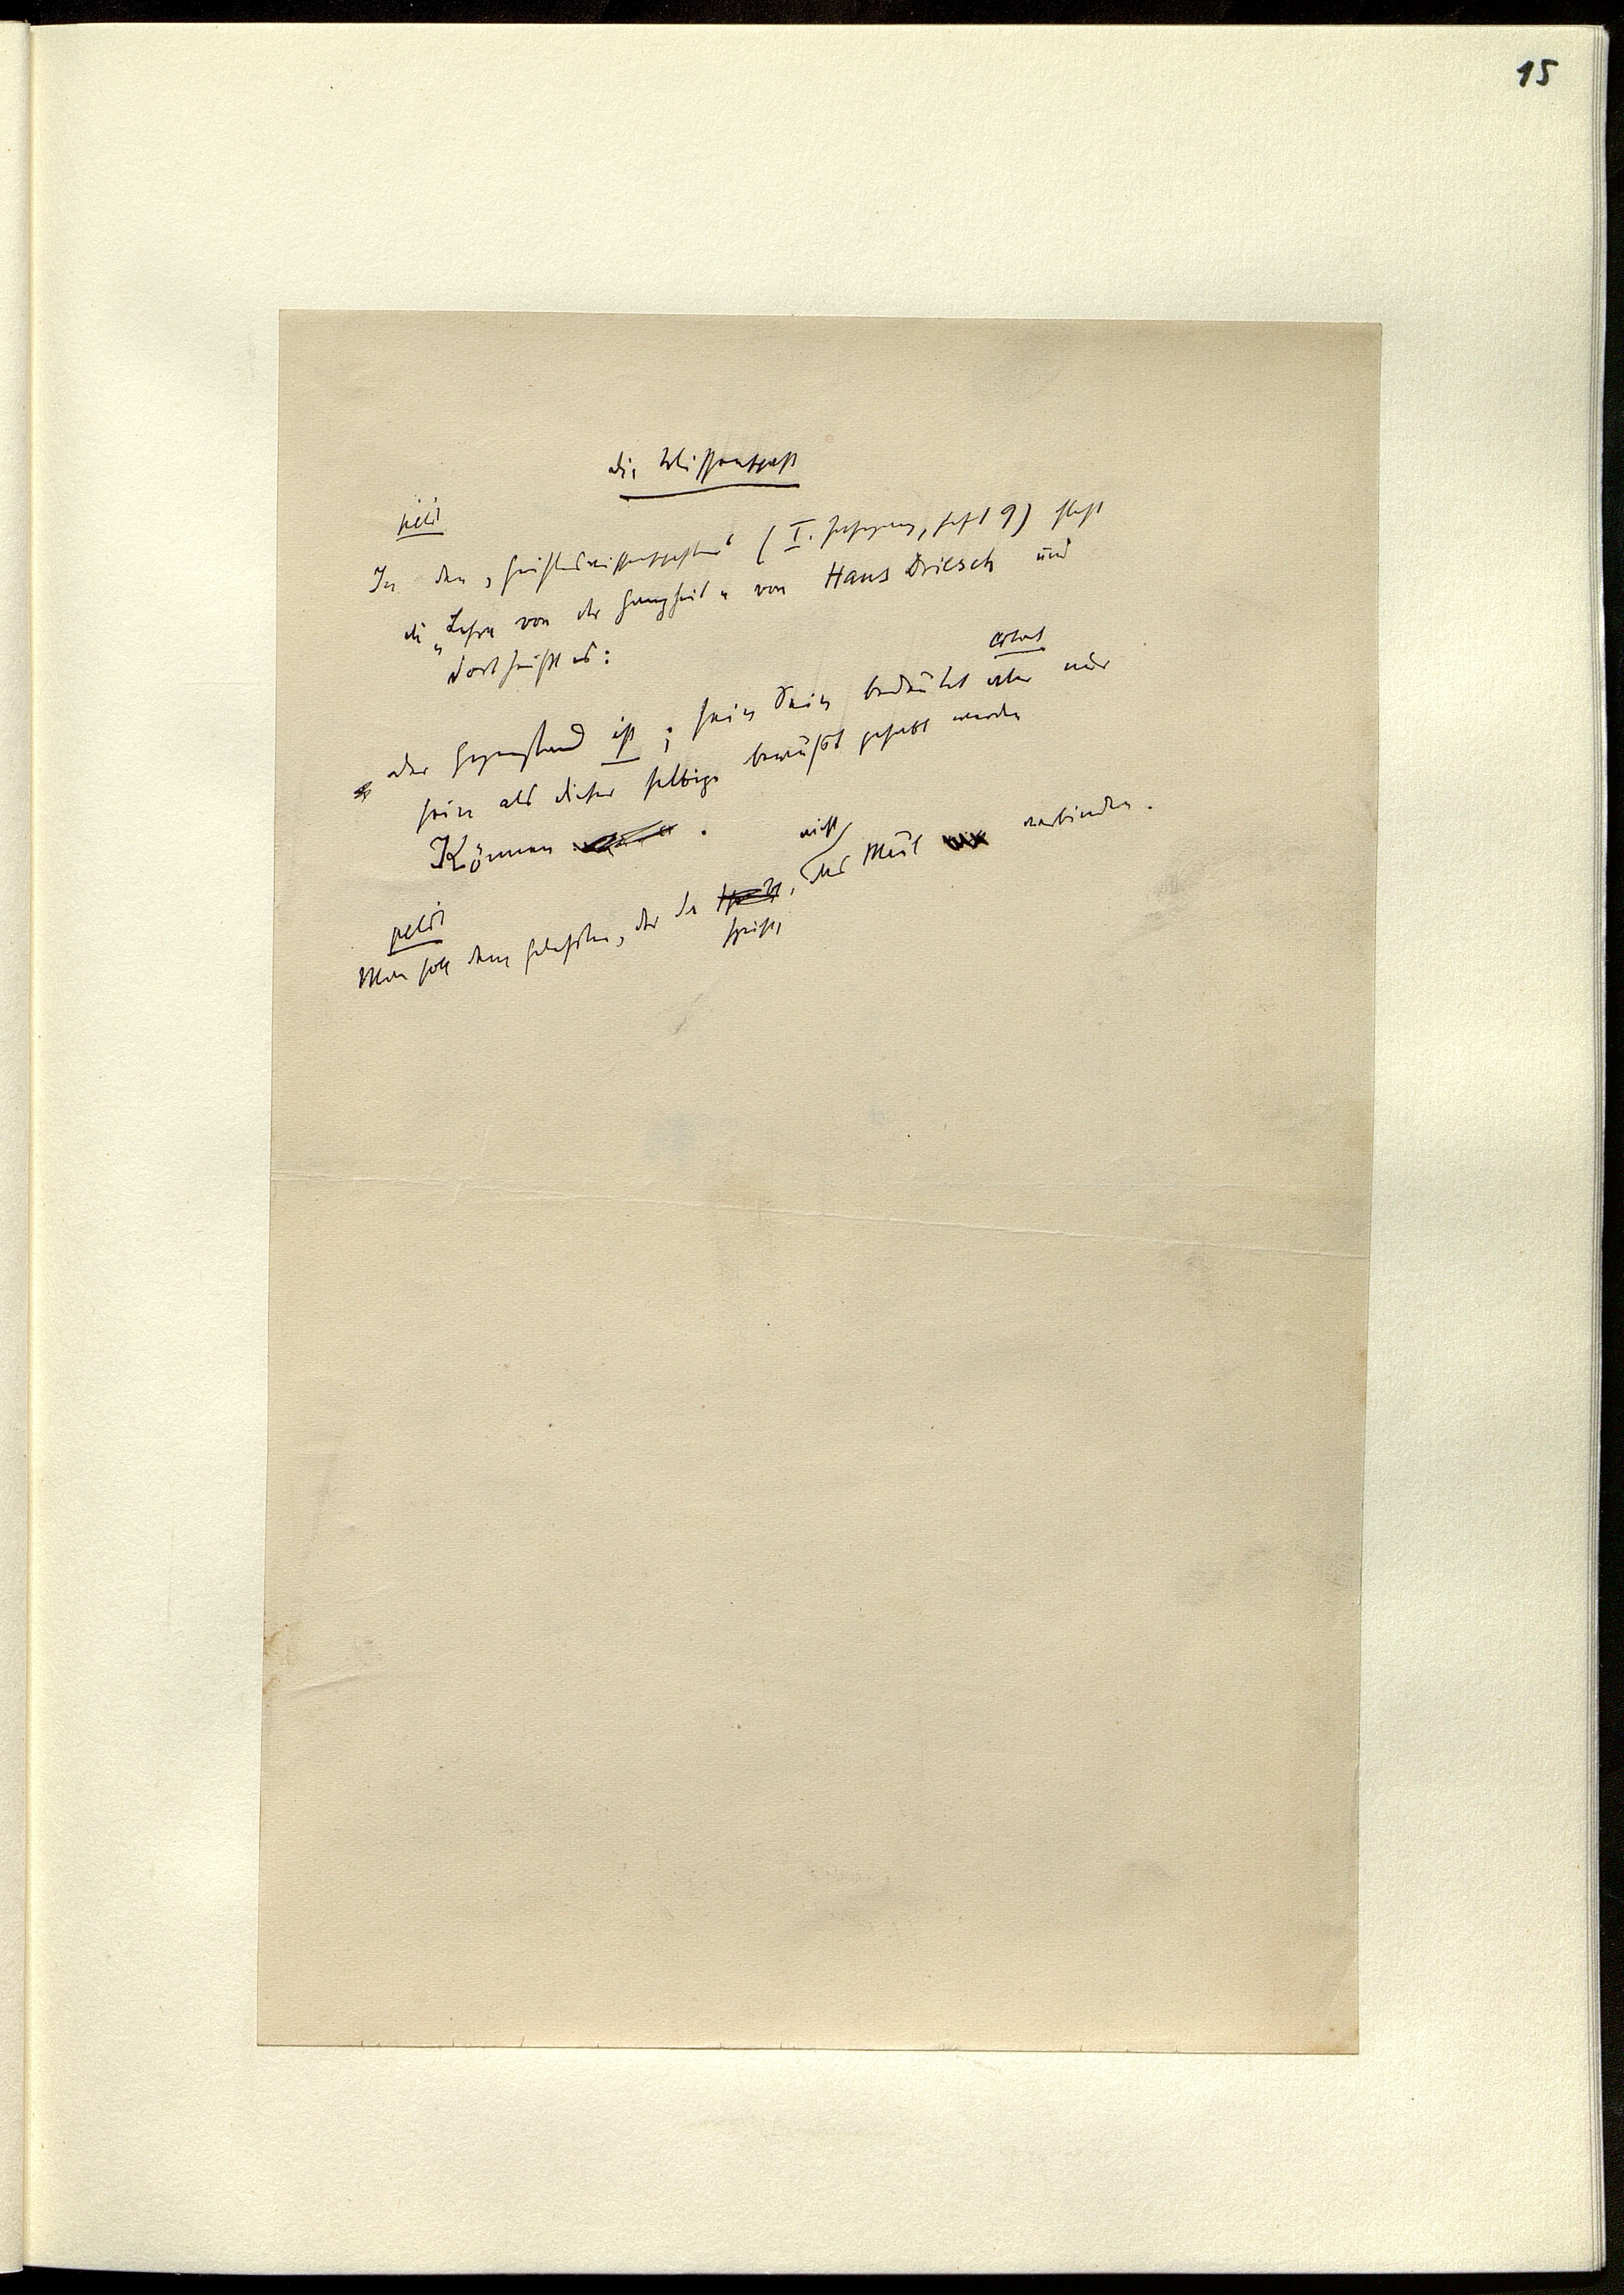 15
Die Wissenschaft
petit
In den „Geisteswissenschaften" (I. Jahrgang, Heft 9) steht
die „Lehre von der Ganzheit" von Hans Driesch und
dort heißt es:
cursiv
der Gegenstand ist; sein Sein bedeutet aber nur
sein als dieser selbige bewußt gehabt werden
Können .
petit
nicht
Man soll dem gedroschenen, der da , das Maul verbinden.